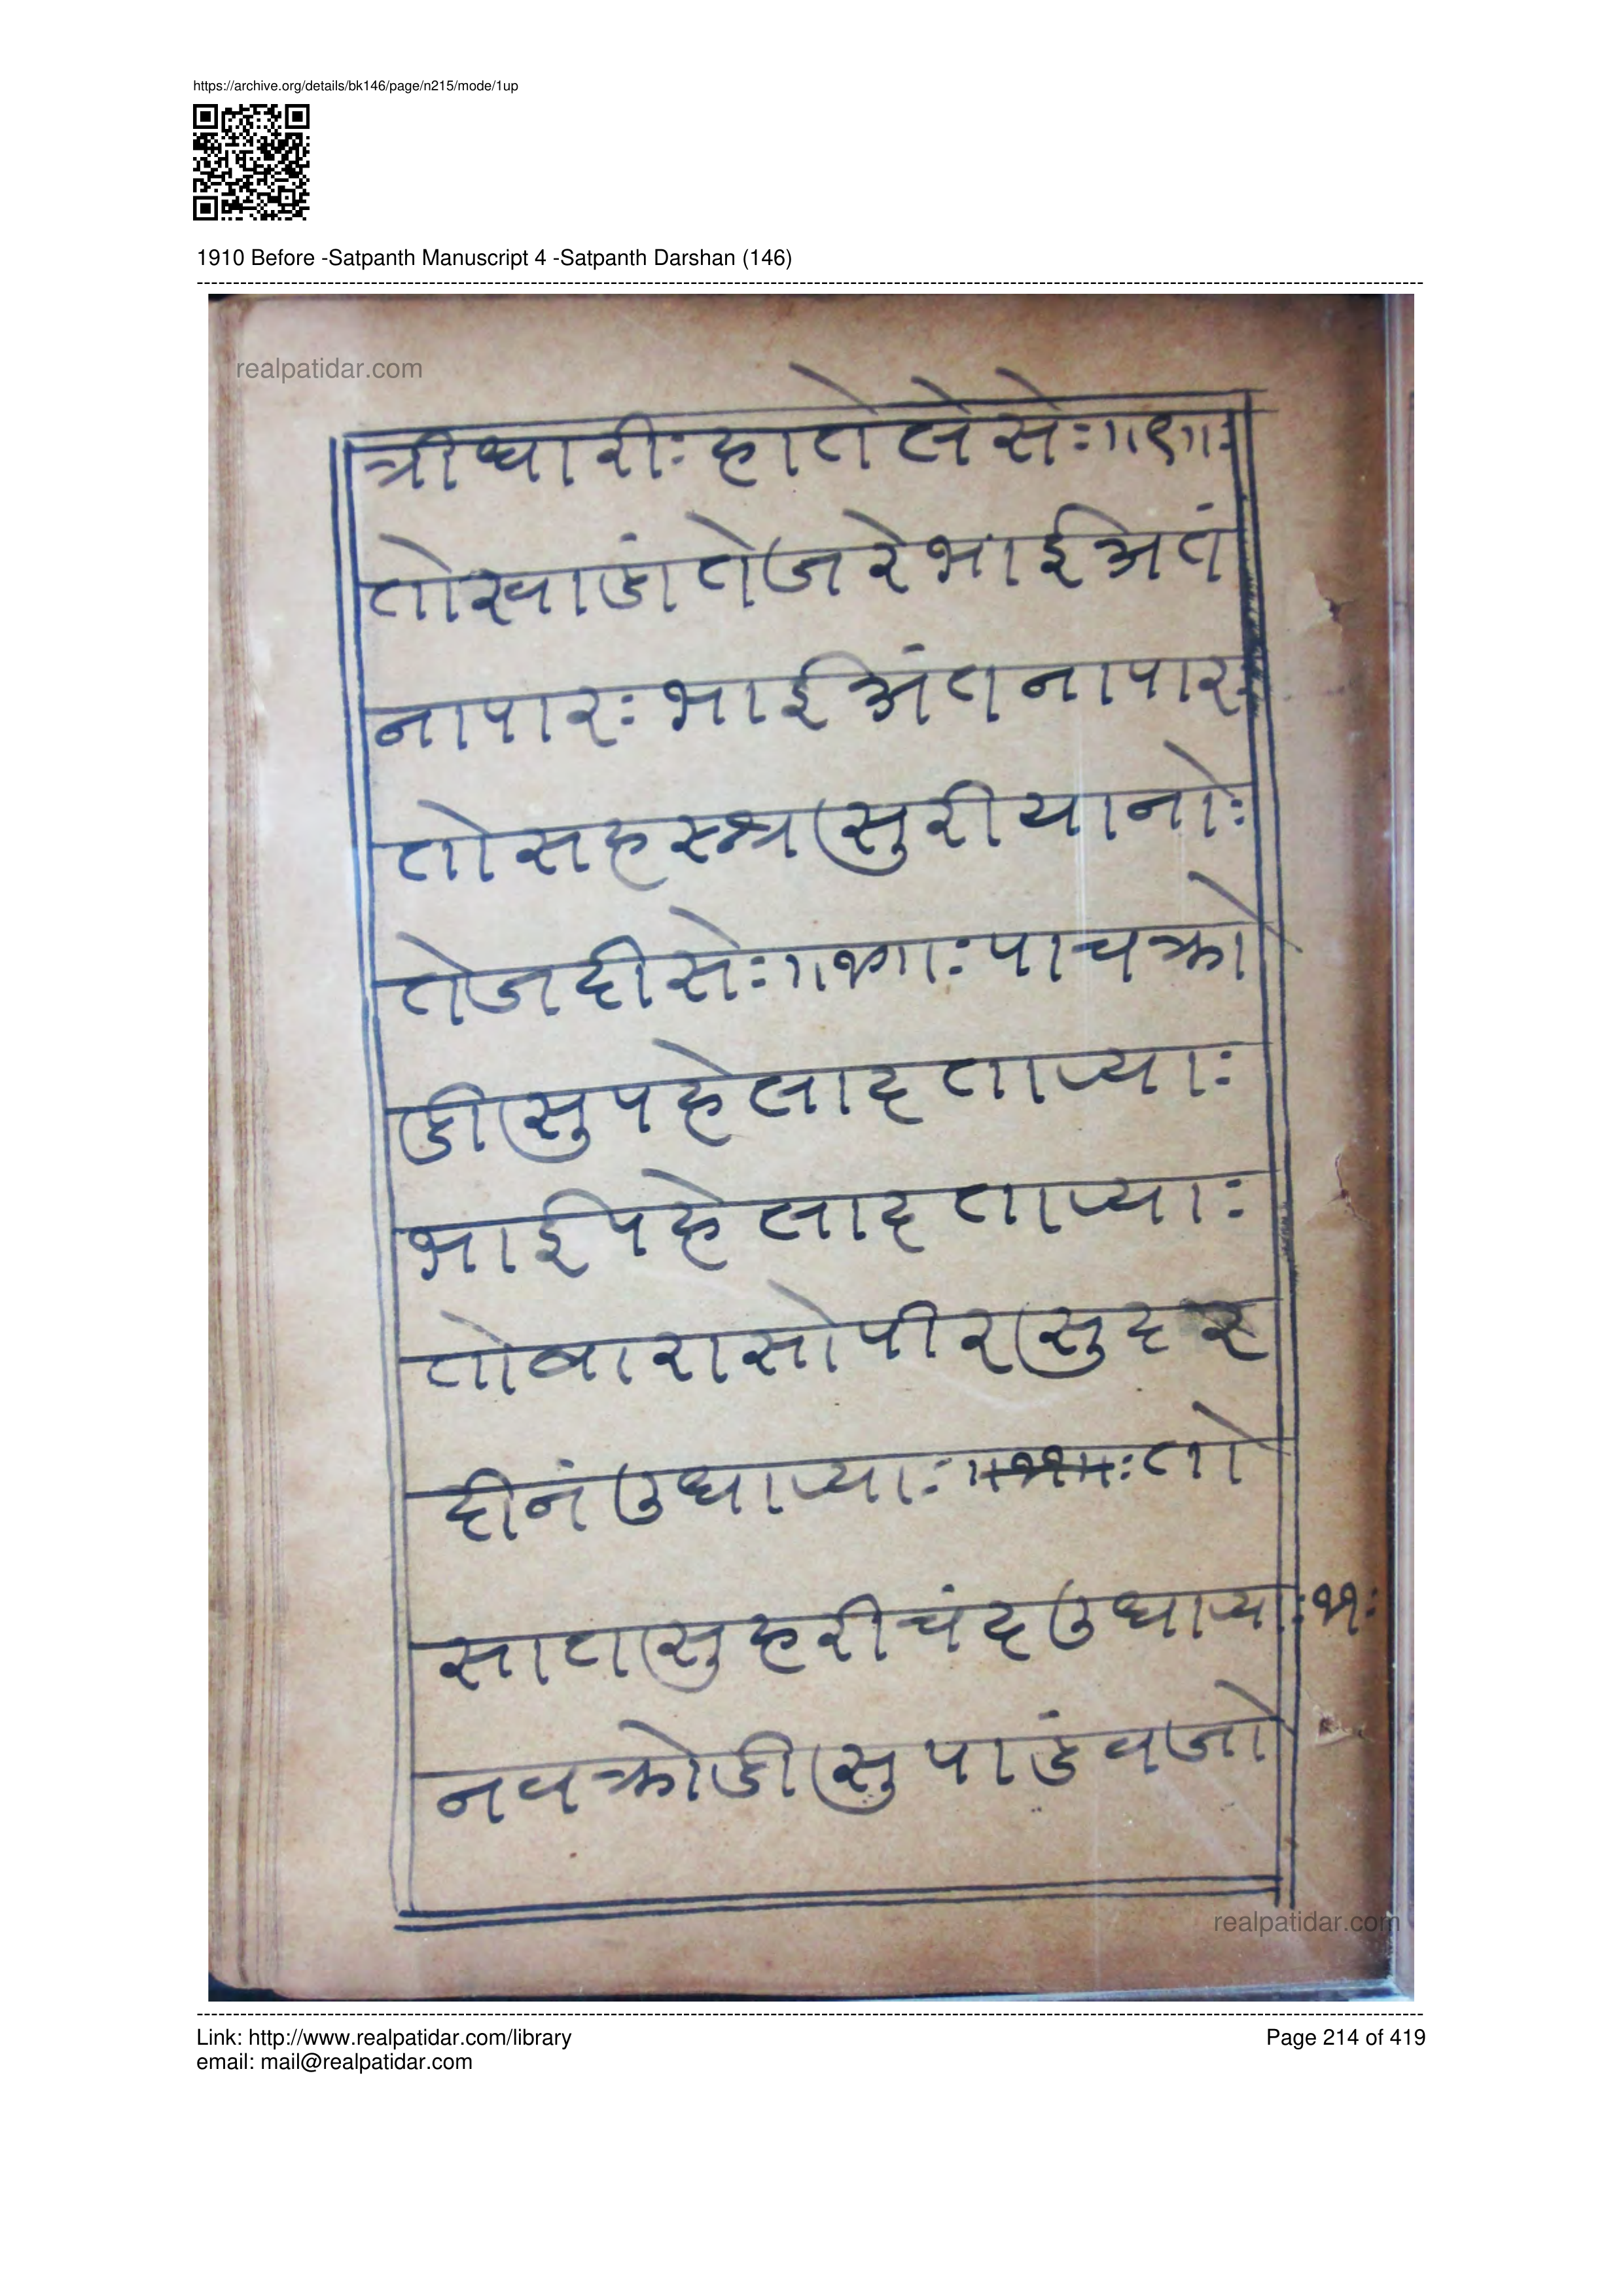 https://archive.org/details/bk146/page/n215/mode/1up
1910 Before -Satpanth Manuscript 4 -Satpanth Darshan (146)
realpatidar.com
त्रीधारीः हातेलेसेः॥९॥ः
तोखाडांतेजरेभाईअतं
नापारः भाईअंतनापारः
तोसहस्त्रसुरीयानोः
तेजदीसेः॥१०॥ः पाचक्रो
डीसुपहेलादताप्याः
भाईपहेलादताप्याः
तोबारासोपीरसुदर
दीनंउधाप्याः तो
सातासुहरीचंदउधाप्याः११ः
नवक्रोडीसुपाडंवजो
realpatidar.com
Link: http://www.realpatidar.com/library
Page 214 of 419
email: mail@realpatidar.com